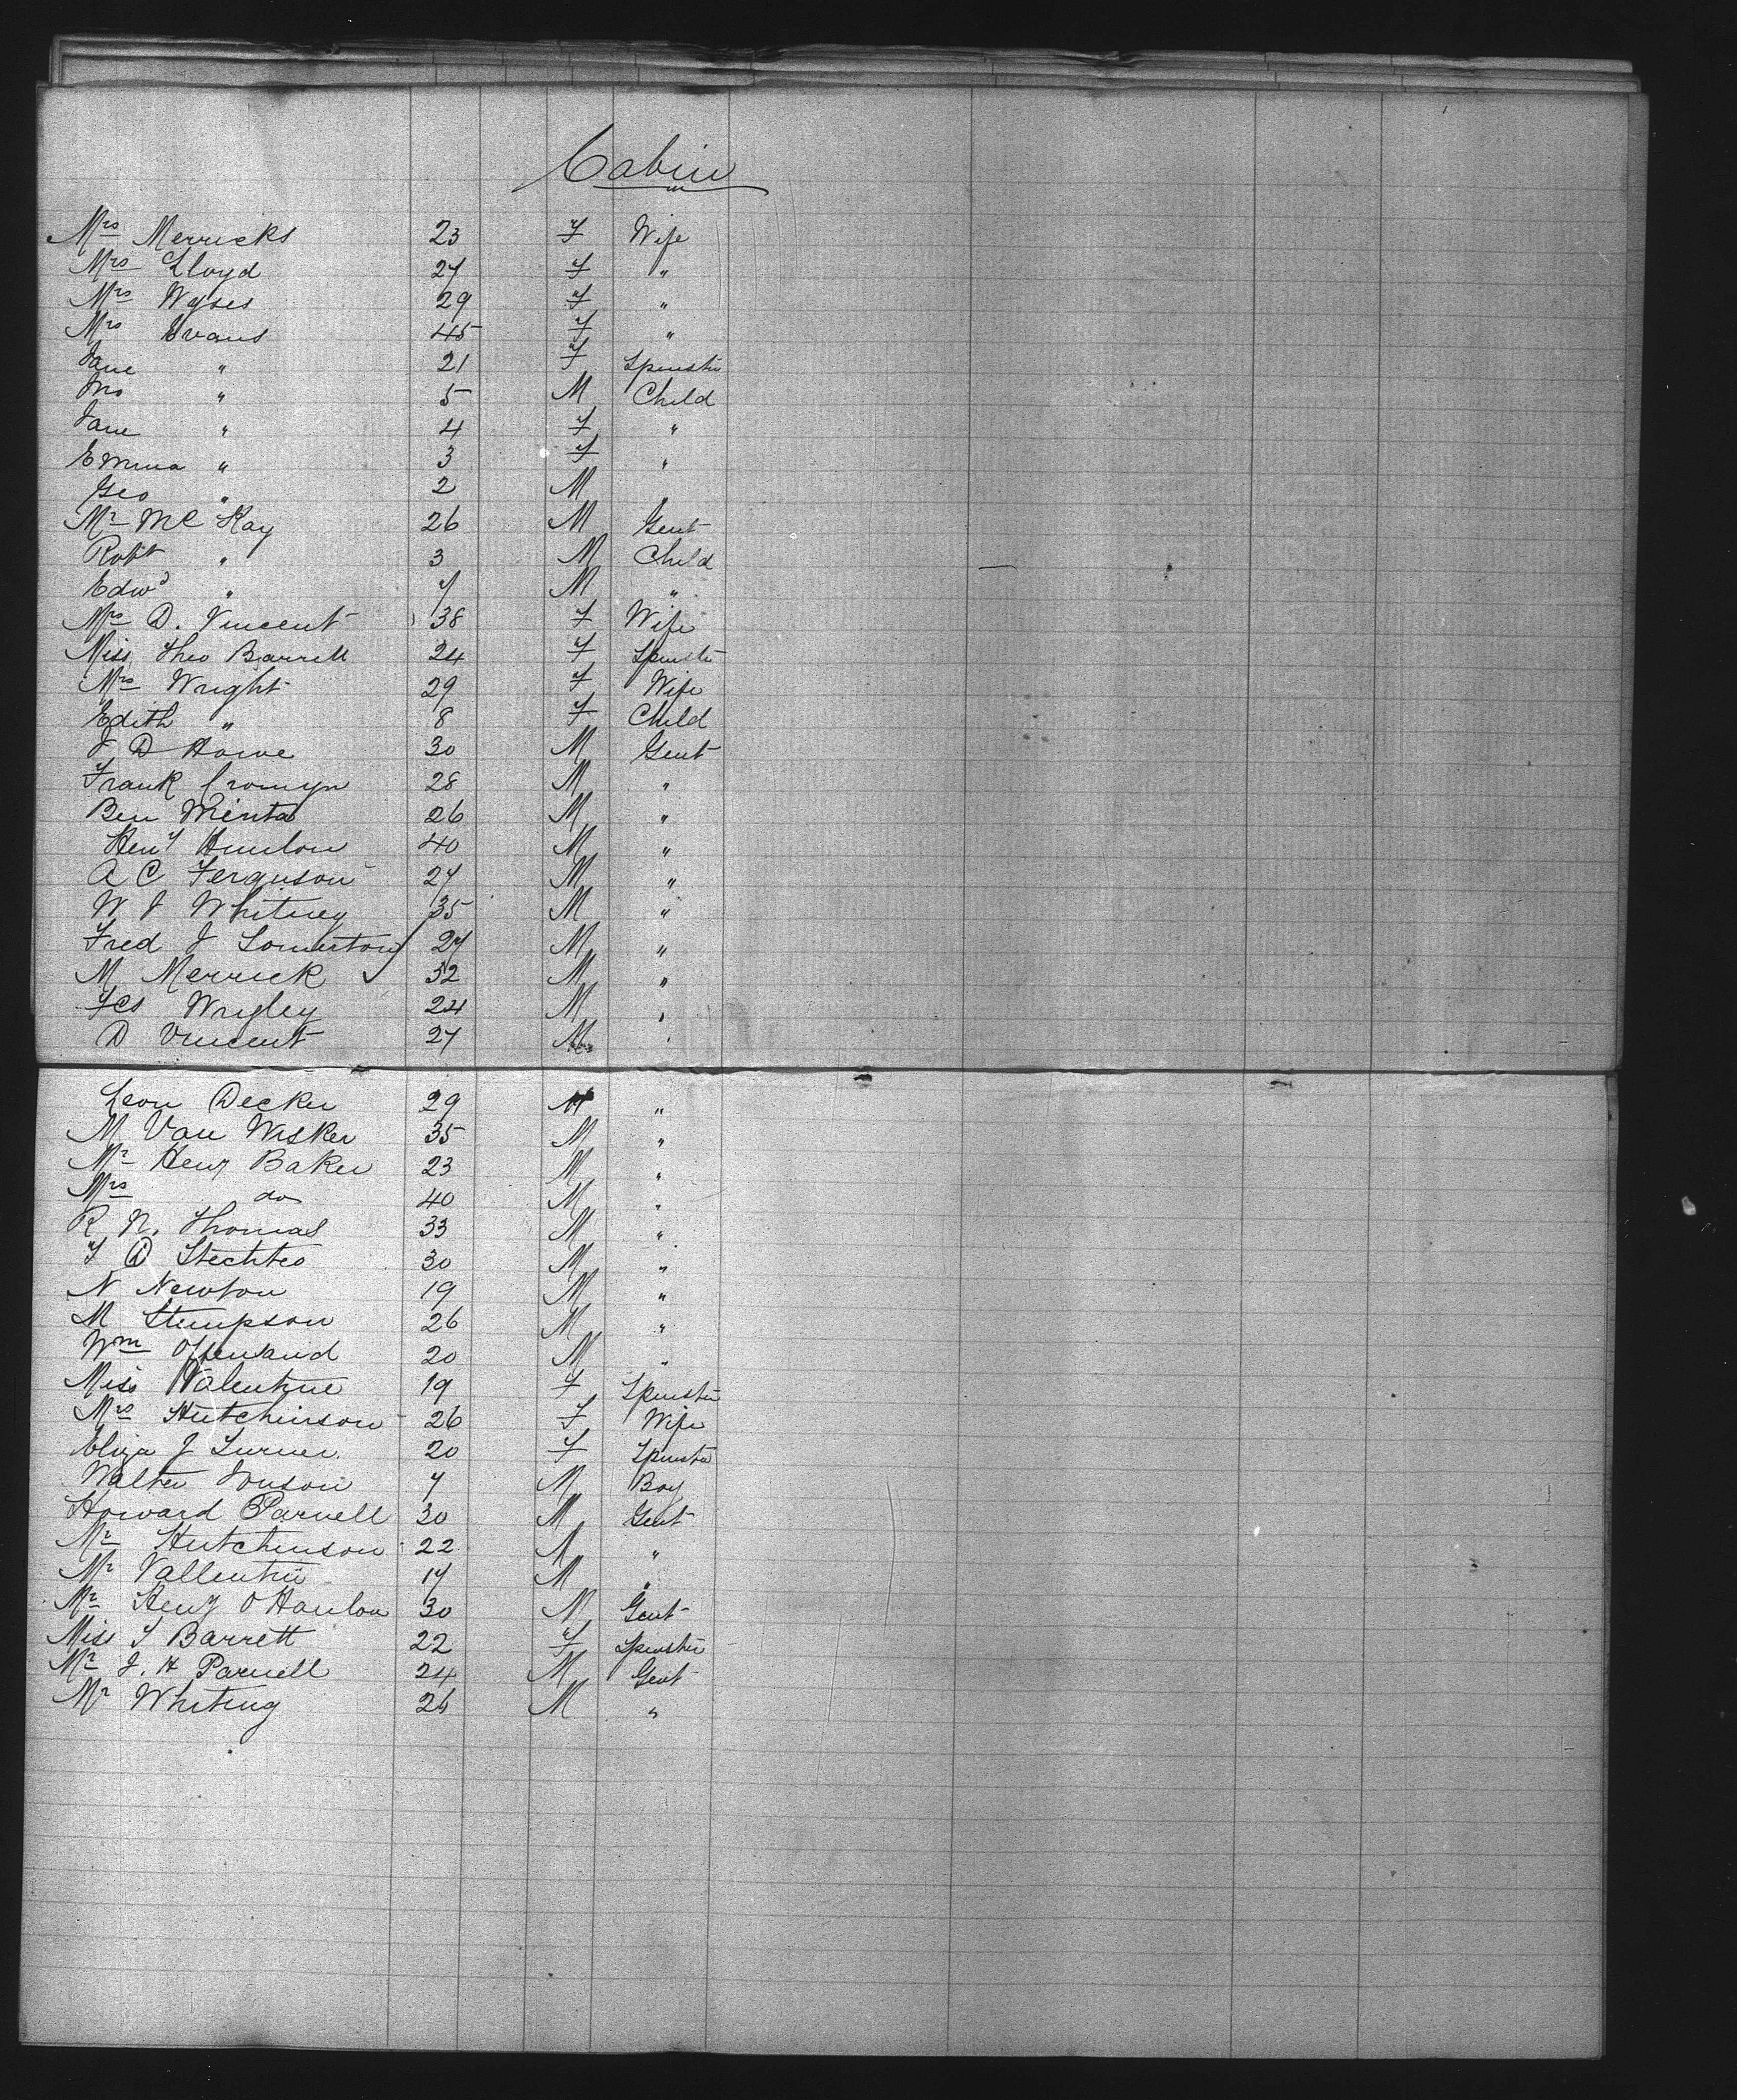 Cabin
Mrs Merricks 23 F Wife
Mrs Lloyd 27 F "
Mrs Wyses 29 F "
Mrs Evans 45 F "
Jane " 21 F Spinster
Jno " 5 M Child
Jane " 4 F "
Emma " 3 F "
Geo " 2 M
Mr McKay 26 M Gent
Robt " 3 M Child
Edwd " 7 M "
Mrs D. Vincent 38 F Wife
Miss Theo Barrell 24 F Spinster
Mrs Wright 29 F Wife
Edith " 8 F Child
J D Howe 30 M Gent
Frank Cromyn 28 M "
Ben Minta 26 M "
Heny Hanlon 40 M "
A C Ferguson 27 M "
W J Whitney 35 M "
Fred J Somerton 27 M "
M Merrick 32 M "
Fcs Wrigley 24 M "
D Vincent 27 M "
Leon Decker 29 M "
M Van Wisker 35 M "
Mr Heny Baker 23 M "
Mrs do 40 M "
R N. Thomas 33 M "
F D 30 M "
N Newton 19 M "
M Stimpson 26 M "
Wm Offensand 20 M "
Miss Valentine 19 F Spinster
Mrs Hutchinson 26 F Wife
Eliza J Turner. 20 F Spinster
Walter 7 M Boy
Howard Parnell 30 M Gent
Mr Hutchinson 22 M "
Mr Vallentin 17 M "
Mr Heny O Hanlon 30 M Gent
Miss T Barrett 22 F Spinster
Mr J. H Parnell 24 M Gent
Mr Whiting 26 M "